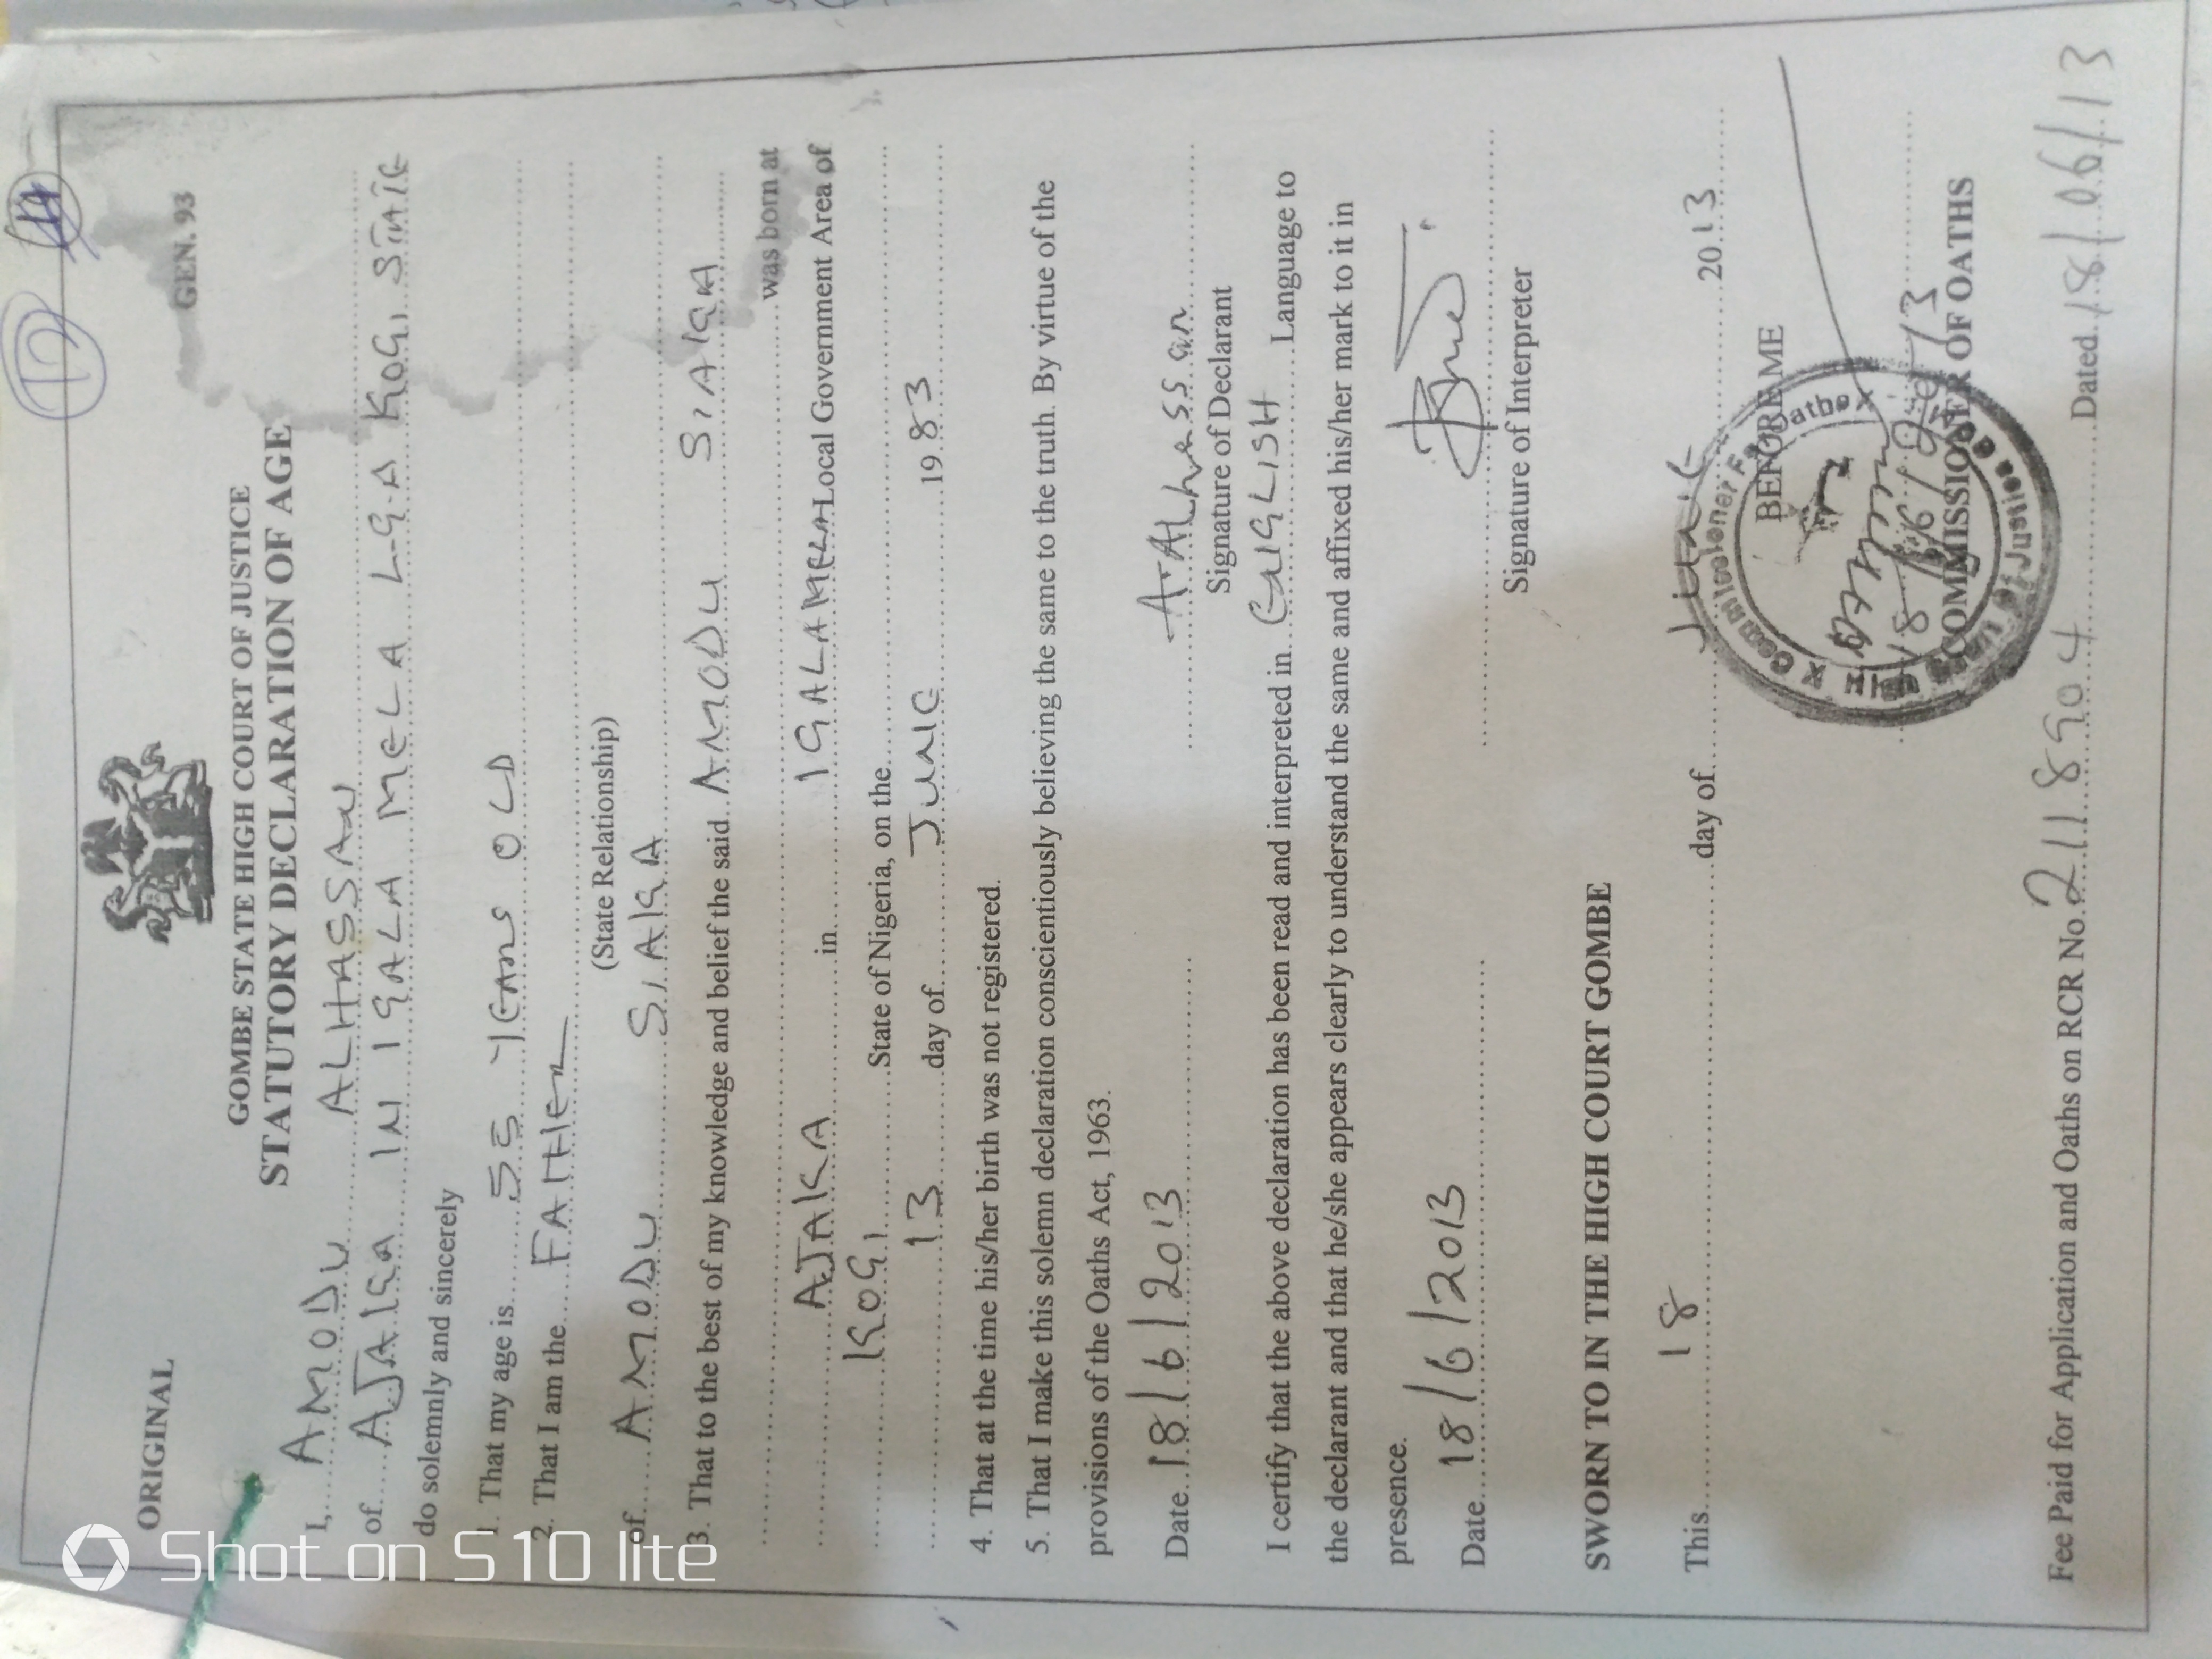 17 14
ORIGINAL
GEN. 93
GOMBE STATE HIGH COURT OF JUSTICE
STATUTORY DECLARATION OF AGE
I, AMODU ALHASSAN
of AJAKA IN IGALA MELA L.G.A KOGI STATE
do solemnly and sincerely
1. That my age is 55 YEARS OLD
2. That I am the FATHER
(State Relationship)
of AMODU SIAKA
3. That to the best of my knowledge and belief the said AMODU SIAKA
was born at
AJAKA in IGALAMELA Local Government Area of
KOGI State of Nigeria, on the
13 day of JUNE 1983
4. That at the time his/her birth was not registered.
5. That I make this solemn declaration conscientiously believing the same to the truth. By virtue of the
provisions of the Oaths Act, 1963.
Date 18/6/2013 A. ALhassan
Signature of Declarant
I certify that the above declaration has been read and interpreted in ENGLISH Language to
the declarant and that he/she appears clearly to understand the same and affixed his/her mark to it in
presence.
Date 18/6/2013
Signature of Interpreter
SWORN TO IN THE HIGH COURT GOMBE
This 18 day of JUNE 2013
BEFORE ME
18/6/2013
COMMISSIONER OF OATHS
Commissioner For Oaths
High Court Of Justice
Fee Paid for Application and Oaths on RCR No. 2118904 Dated 18/06/13
Shot on S10 lite